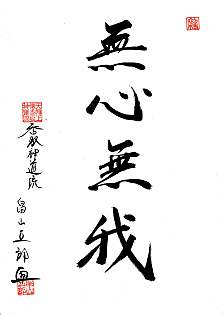 無心無我
香取神道流
畠山五郎